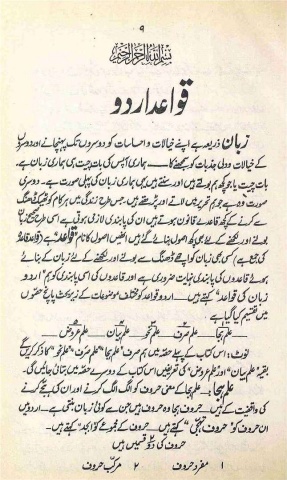 ۹
بسم اللہ الرحمن الرحیم
قواعد اردو
زبان ذریعہ ہے اپنے خیالات و احساسات کو دوسروں تک پہنچانے اور دوسروں
کے خیالات و دلی جذبات کو سمجھنے کا ــ ہماری آپس کی بات چیت ہی ہماری زبان ہے ـ
بات چیت یا جو کچھ ہم بولتے ہیں اور سنتے ہیں یہی ہماری زبان کی پہلی صورت ہے ـ دوسری
صورت وہ ہے جو ہم تحریر میں لاتے اور پڑھتے ہیں ـ جس طرح زندگی میں ہر کام کو ٹھیک ڈھنگ
سے کرنے کے کچھ قاعدے قانون ہوتے ہیں ان کی پابندی لازمی ہوتی ہے اسی طرح صحیح زبان
بولنے اور لکھنے کے لئے بھی کچھ اصول بنائے گئے ہیں ـ انھیں اصول کا نام "قواعد" ہے (قاعدہ قواعد
کی جمع ہے) اس لئے بھی زبان کو اچھے ڈھنگ سے بولنے اور لکھنے کے لئے قواعد کے بنائے
ہوئے قاعدوں کی پابندی نہایت ضروری ہے اور قاعدوں کی اسی پابندی کو ہم "اردو
زبان کی قواعد" کہتے ہیں ـ اردو قواعد کو مختلف موضوعات کے زیر تحت پانچ حصوں میں
تقسیم کیا گیا ہے
علم ہجا، علم صرف، علم نحو، علم بیان، علم عروض
نوٹ: اس کتاب کے پہلے حصہ میں ہم صرف "علم ہجا" "علم صرف" "علم نحو" کا ذکر کریں گے
بقیہ "علم بیان" اور "علم عروض" کی تعریفیں اس کتاب کے دوسرے حصہ میں بتائی جائیں گی ـ
علم ہجا: علم ہجا کے معنی حروف کو الگ الگ کرنے اور ان کی ہجے کرنے
کی واقفیت کے ہیں ـ حروف ہجا وہ حروف ہیں جن سے کوئی زبان بنتی ہے ـ اردو میں
ان حروف کو "حروف تہجی" کہتے ہیں ـ حروف کے مجموعے کو ابجد کہتے ہیں ـ
حروف کی دو قسمیں ہیں
۱ مفرد حروف ۲ مرکب حروف